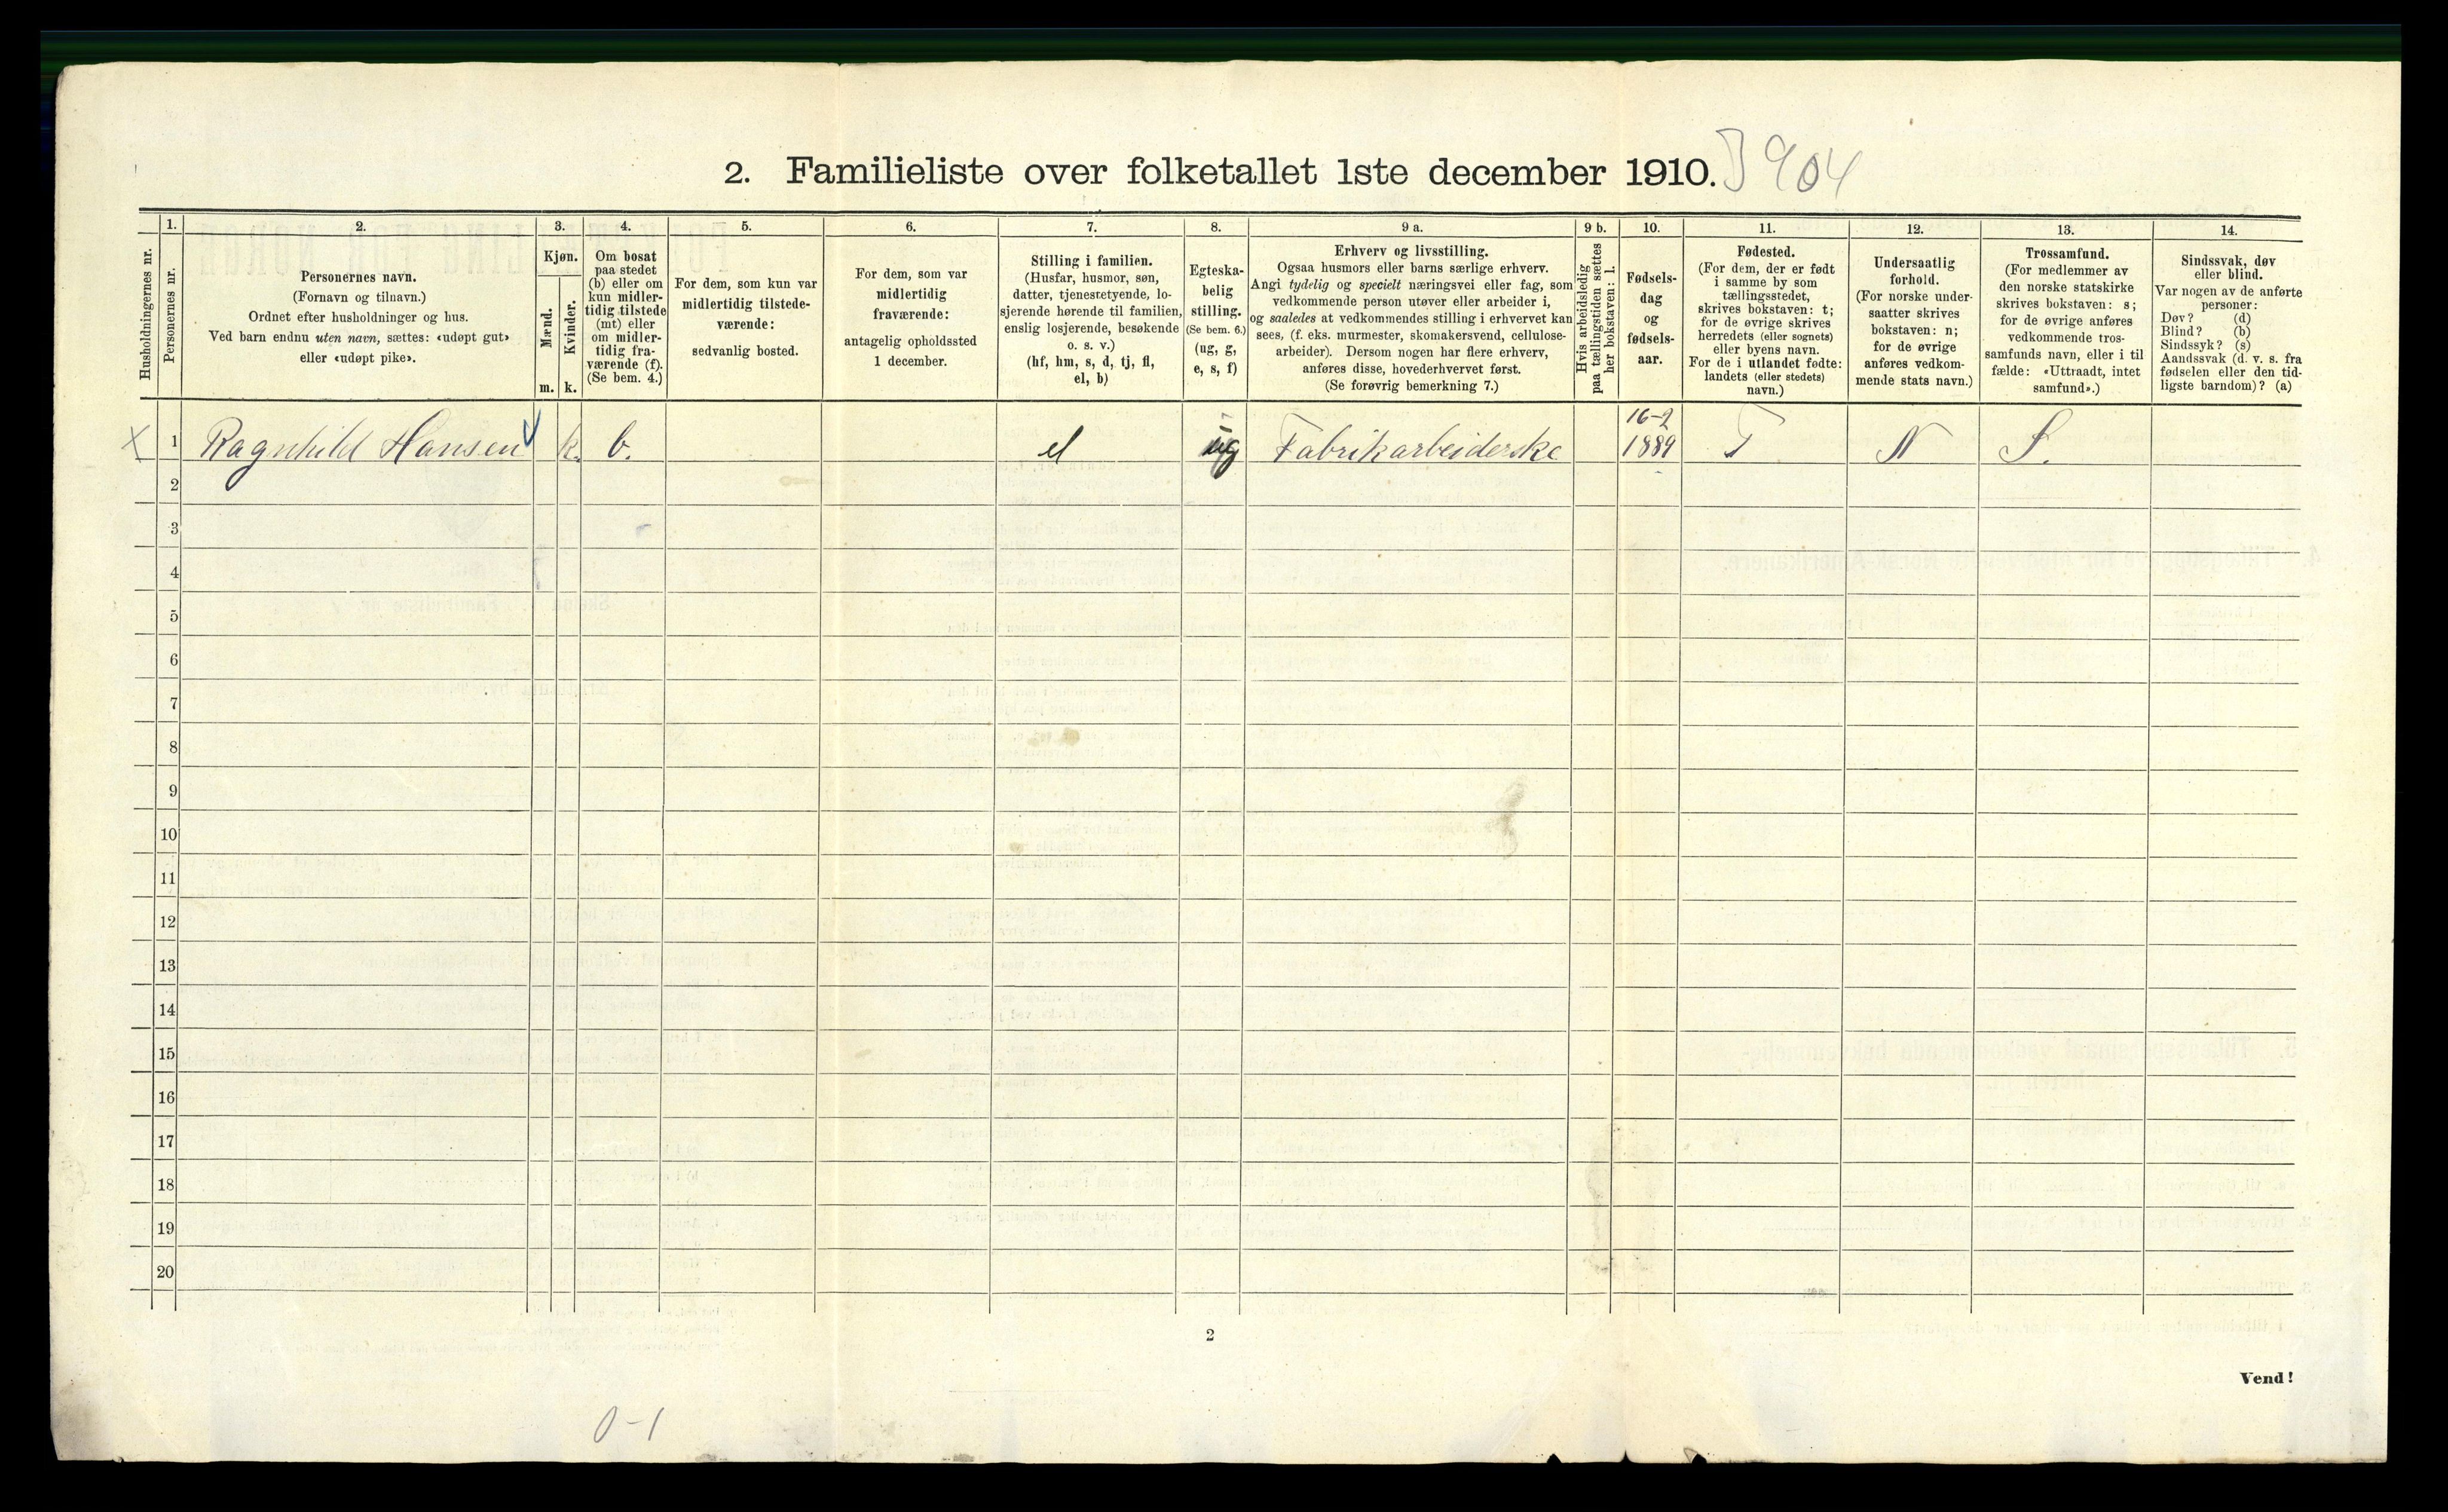 2. Familieliste over folketallet 1ste december 1910. 904
Husholdningernes nr.
1.
Personernes nr.
2.
Personernes navn.
(Fornavn og tilnavn.)
Ordnet efter husholdninger og hus.
Ved barn endnu uten navn, sættes: «udøpt gut»
eller «udøpt pike».
3.
Kjøn.
Mænd.
Kvinder.
m. k.
4.
Om bosat
paa stedet
(b) eller om
kun midler-
tidig tilstede
(mt) eller
om midler-
tidig fra-
værende (f).
(Se bem. 4.)
5.
For dem, som kun var
midlertidig tilstede-
værende:
sedvanlig bosted.
6.
For dem, som var
midlertidig
fraværende:
antagelig opholdssted
1 december.
7.
Stilling i familien.
(Husfar, husmor, søn,
datter, tjenestetyende, lo-
sjerende hørende til familien,
enslig losjerende, besøkende
o. s. v.)
(hf, hm, s, d, tj, fl,
el, b)
8.
Egteska-
belig
stilling.
(Se bem. 6.)
(ug, g,
e, s, f)
9 a.
Erhverv og livsstilling.
Ogsaa husmors eller barns særlige erhverv.
Angi tydelig og specielt næringsvei eller fag, som
vedkommende person utøver eller arbeider i,
og saaledes at vedkommendes stilling i erhvervet kan
sees, (f. eks. murmester, skomakersvend, cellulose-
arbeider). Dersom nogen har flere erhverv,
anføres disse, hovederhvervet først.
(Se forøvrig bemerkning 7.)
9 b.
Hvis arbeidsledig
paa tællingstiden sættes
her bokstaven: l.
10.
Fødsels-
dag
og
fødsels-
aar.
11.
Fødested.
(For dem, der er født
i samme by som
tællingsstedet,
skrives bokstaven: t;
for de øvrige skrives
herredets (eller sognets)
eller byens navn.
For de i utlandet fødte:
landets (eller stedets)
navn.)
12.
Undersaatlig
forhold.
(For norske under-
saatter skrives
bokstaven: n;
for de øvrige
anføres vedkom-
mende stats navn.)
13.
Trossamfund.
(For medlemmer av
den norske statskirke
skrives bokstaven: s;
for de øvrige anføres
vedkommende tros-
samfunds navn, eller i til
fælde: «Uttraadt, intet
samfund».)
14.
Sindssvak, døv
eller blind.
Var nogen av de anførte
personer:
Døv? (d)
Blind? (b)
Sindssyk? (s)
Aandssvak (d. v. s. fra
fødselen eller den tid-
ligste barndom)? (a)
X 1 Ragnhild Hansen k. b. el ug Fabrikarbeiderske 16-2 1889 T N S.
2
3
4
5
6
7
8
9
10
11
12
13
14
15
16
17
18
19
20
2
Vend!
0-1